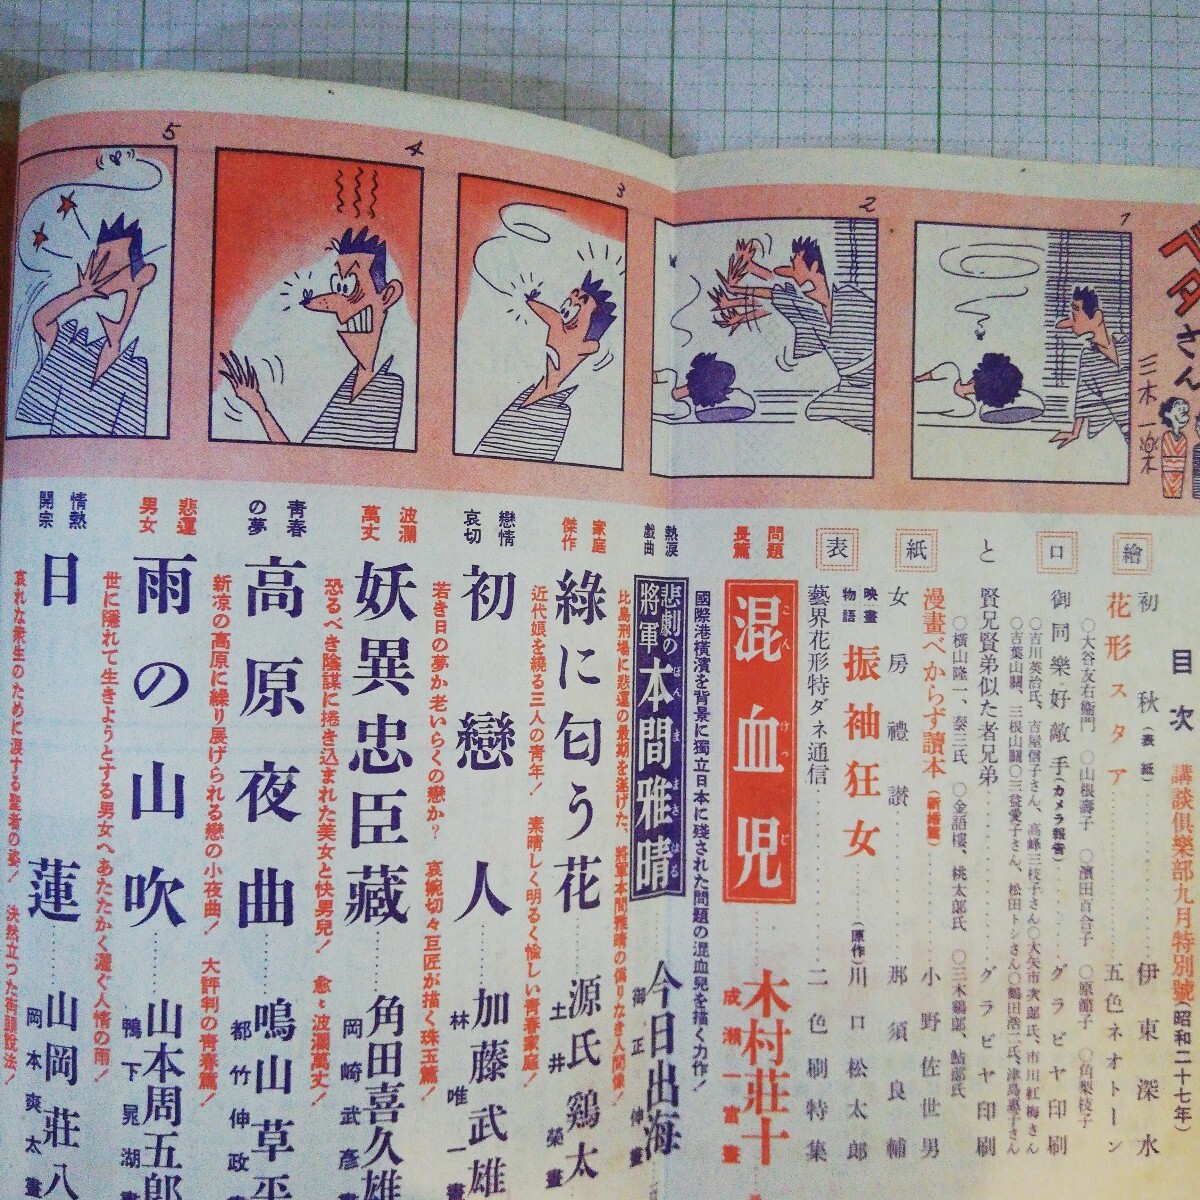 ブタさん
三木一楽
1
2
3
4
5
目次
講談倶樂部九月特別號(昭和二十七年)
繪
初秋(表紙)……伊東深水
花形スタア……五色ネオトーン
○大谷友右衞門 ○山根壽子 ○濱田百合子 ○原節子 ○角梨枝子
口
御同樂好敵手(カメラ報告)……グラビヤ印刷
○吉川英治氏、吉屋信子さん、高峰三枝子さん○大矢市次郎氏、市川紅梅さん
○吉葉山關、三根山關○三益愛子さん、松田トシさん○鶴田浩二氏、津島惠子さん
と
賢兄賢弟似た者兄弟……グラビヤ印刷
○横山隆一、泰三氏 ○金語樓、桃太郎氏 ○三木鷄郎、鮎郎氏
紙
漫畫べからず讀本(新婚篇)……小野佐世男
女房禮讃……那須良輔
表
映畫物語 振袖狂女……(原作)川口松太郎
藝界花形特ダネ通信……二色刷特集
問題長篇
混血児
こんけつじ
木村莊十
成瀬一富畫
國際港横濱を背景に獨立日本に殘された問題の混血兒を描く力作!
熱涙戯曲
悲劇の將軍 本間雅晴
ほんままさはる
今日出海
御正伸畫
比島刑場に悲運の最期を遂げた、將軍本間雅晴の僞りなき人間像!
家庭傑作
綠に匂う花……源氏鷄太
土井榮畫
近代娘を繞る三人の青年! 素晴しく明るく愉しい青春家庭!
戀情哀切
初戀人……加藤武雄
林唯一畫
若き日の夢か老いらくの戀か? 哀婉切々巨匠が描く珠玉篇!
波瀾萬丈
妖異忠臣藏……角田喜久雄
岡崎武彦畫
恐るべき陰謀に捲き込まれた美女と快男兒! 愈々波瀾萬丈!
青春の夢
高原夜曲……鳴山草平
都竹伸政畫
新凉の高原に繰り展げられる戀の小夜曲! 大評判の青春篇!
悲運男女
雨の山吹……山本周五郎
鴨下晁湖畫
世に隱れて生きようとする男女へあたたかく灑ぐ人情の雨!
情熱開宗
日蓮……山岡莊八
岡本爽太畫
哀れな衆生のために涙する聖者の姿! 決然立つた街頭説法!